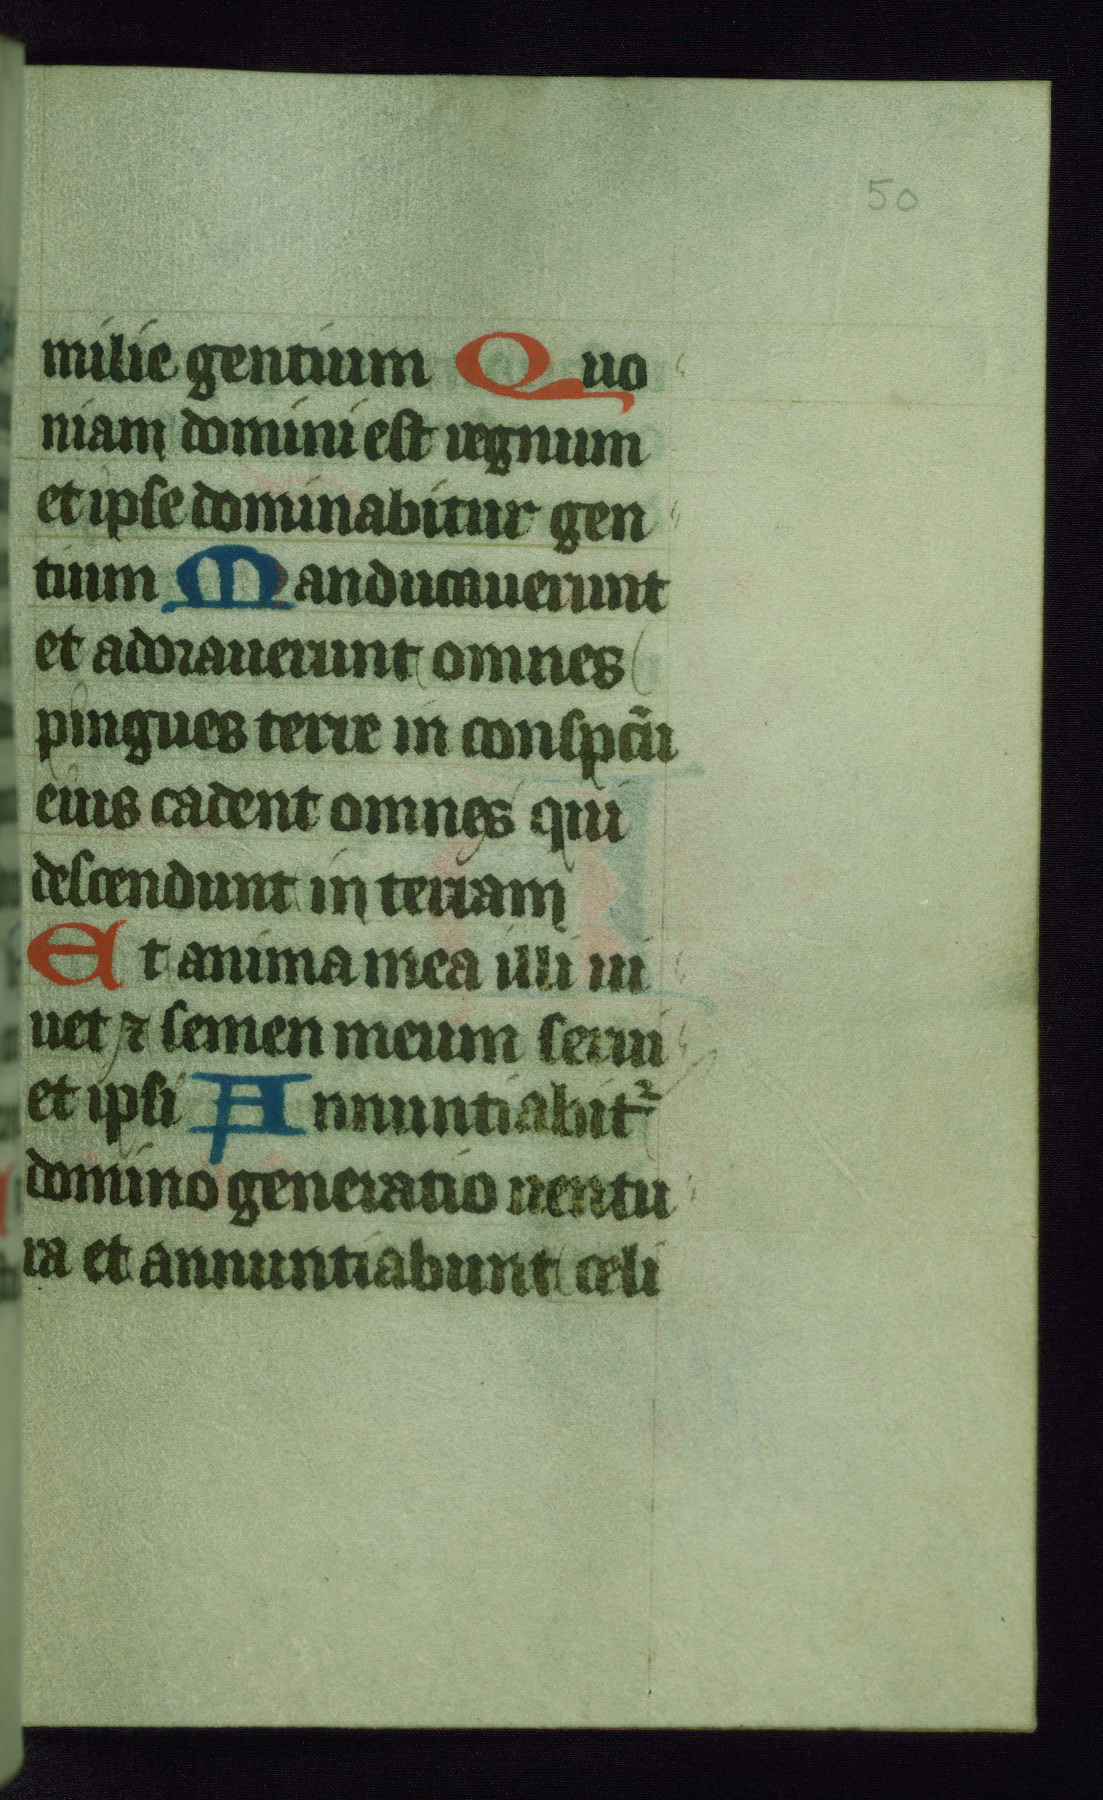 50
milie gentium Quo
niam domini est regnum
et ipse dominabitur gen
tium Manducauerunt
et adorauerunt omnes
pingues terre in conspcũ
eius cadent omnes qui
descendunt in terram
Et anima mea illi ui
uet ⁊ semen meum serui
et ipsi Annuntiabitꝛ
domino generatio uentu
ra et annuntiabunt celi